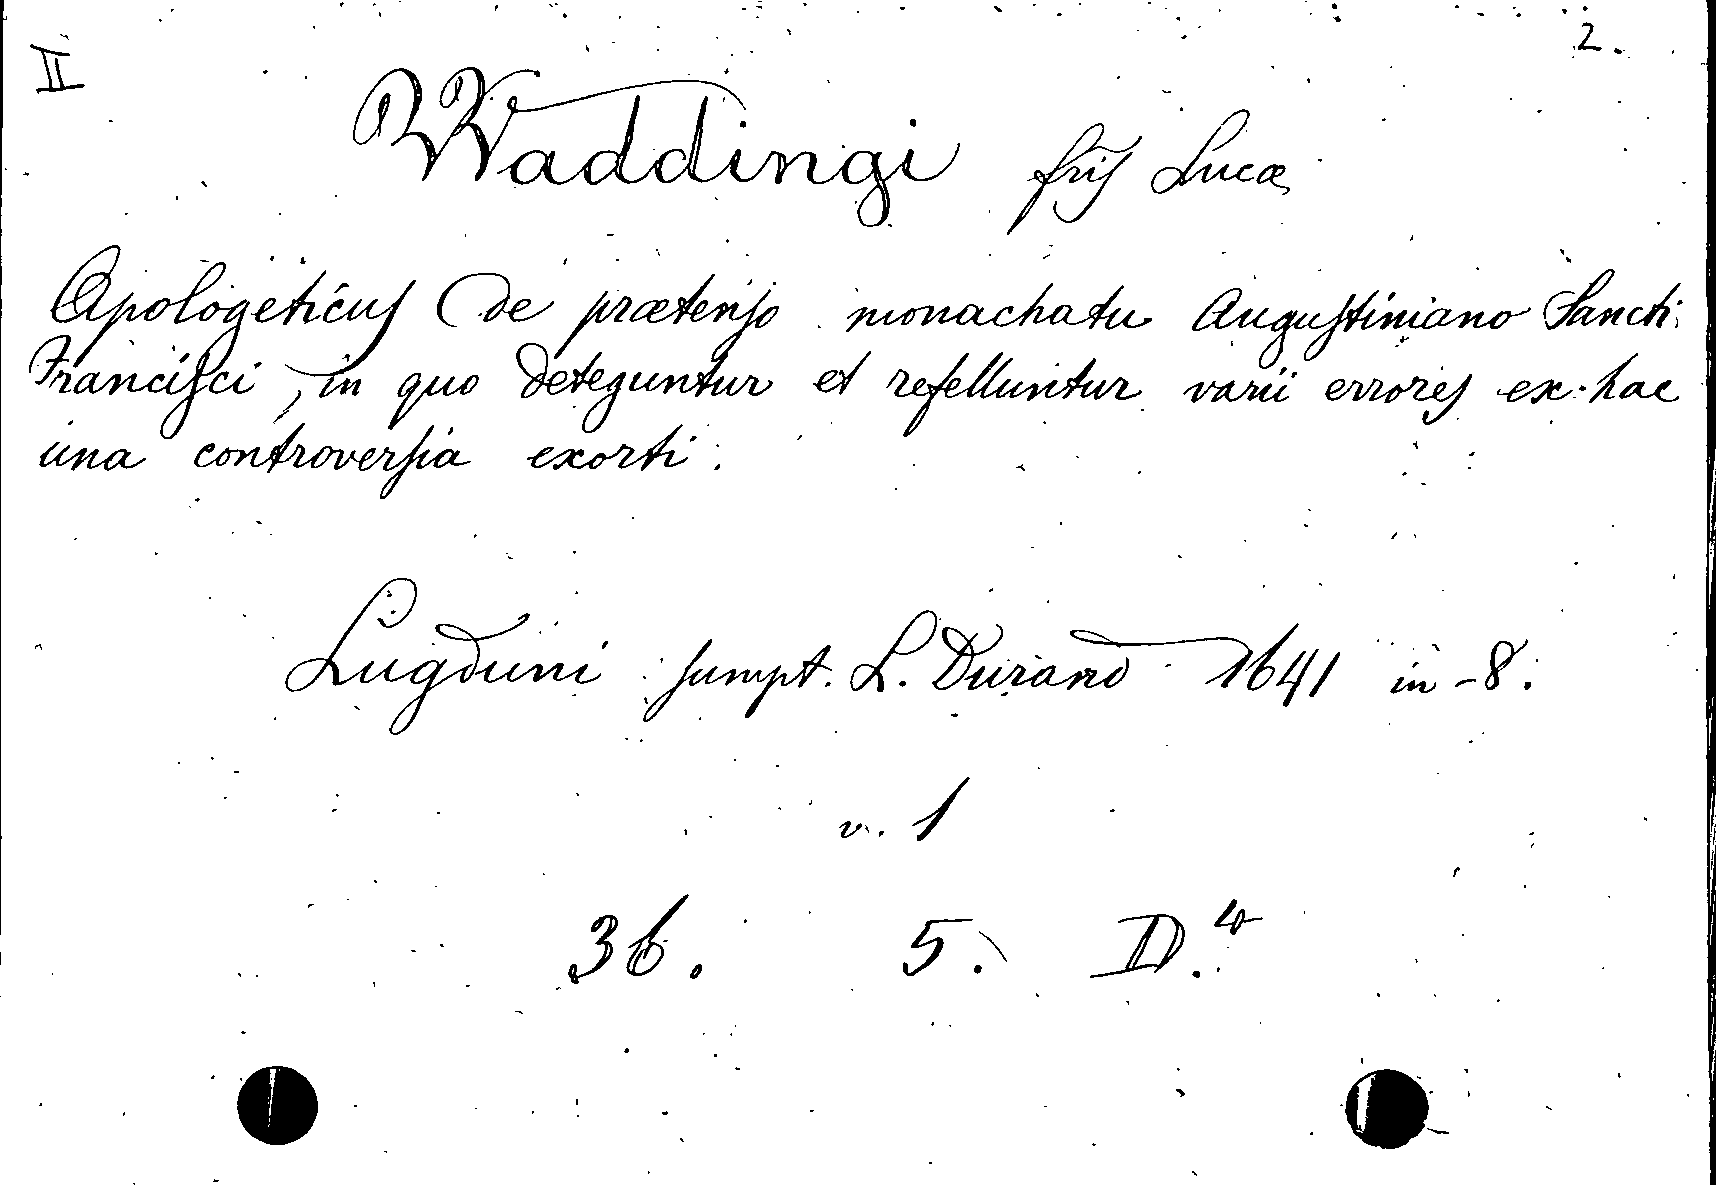 II
2.
Waddingi fris Lucæ
Apologeticus de prætenso monachatu Augustiniano Sancti
Francisci, in quo deteguntur et refelluntur varii errores ex hac
una controversia exorti.
Lugduni sumpt. L. Durand 1641 in-8.
v. 1
36. 5. D.4